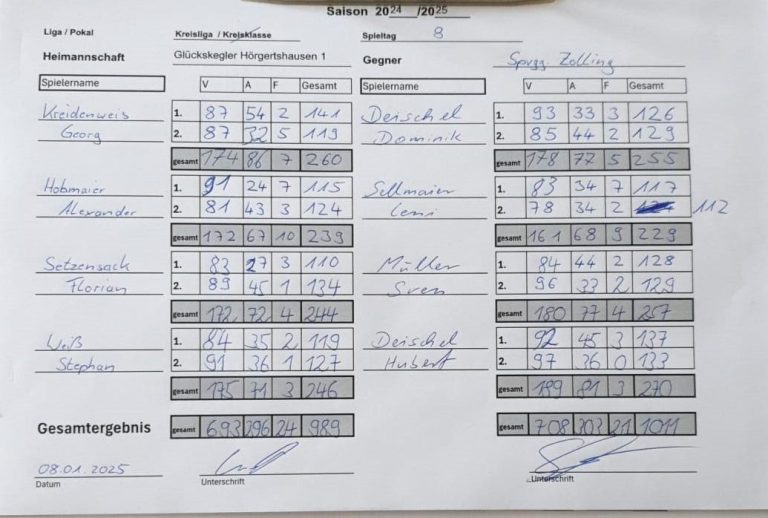 Saison 2024 /2025
Liga / Pokal Kreisliga / Kreisklasse Spieltag 8
Heimannschaft Glückskegler Hörgertshausen 1 Gegner Spvgg. Zolling
Spielername V A F Gesamt Spielername V A F Gesamt
Kreidenweis 1. 87 54 2 141 Deischel 1. 93 33 3 126
Georg 2. 87 32 5 119 Dominik 2. 85 44 2 129
gesamt 174 86 7 260 gesamt 178 77 5 255
Hobmaier 1. 91 24 7 115 Sellmaier 1. 83 34 7 117
Alexander 2. 81 43 3 124 Leni 2. 78 34 2 112
gesamt 172 67 10 239 gesamt 161 68 9 229
Setzensack 1. 83 27 3 110 Müller 1. 84 44 2 128
Florian 2. 89 45 1 134 Sven 2. 96 33 2 129
gesamt 172 72 4 244 gesamt 180 77 4 257
Weiß 1. 84 35 2 119 Deischel 1. 92 45 3 137
Stephan 2. 91 36 1 127 Hubert 2. 97 36 0 133
gesamt 175 71 3 246 gesamt 189 81 3 270
Gesamtergebnis gesamt 693 296 24 989 gesamt 708 303 21 1011
08.01.2025
Datum Unterschrift Unterschrift